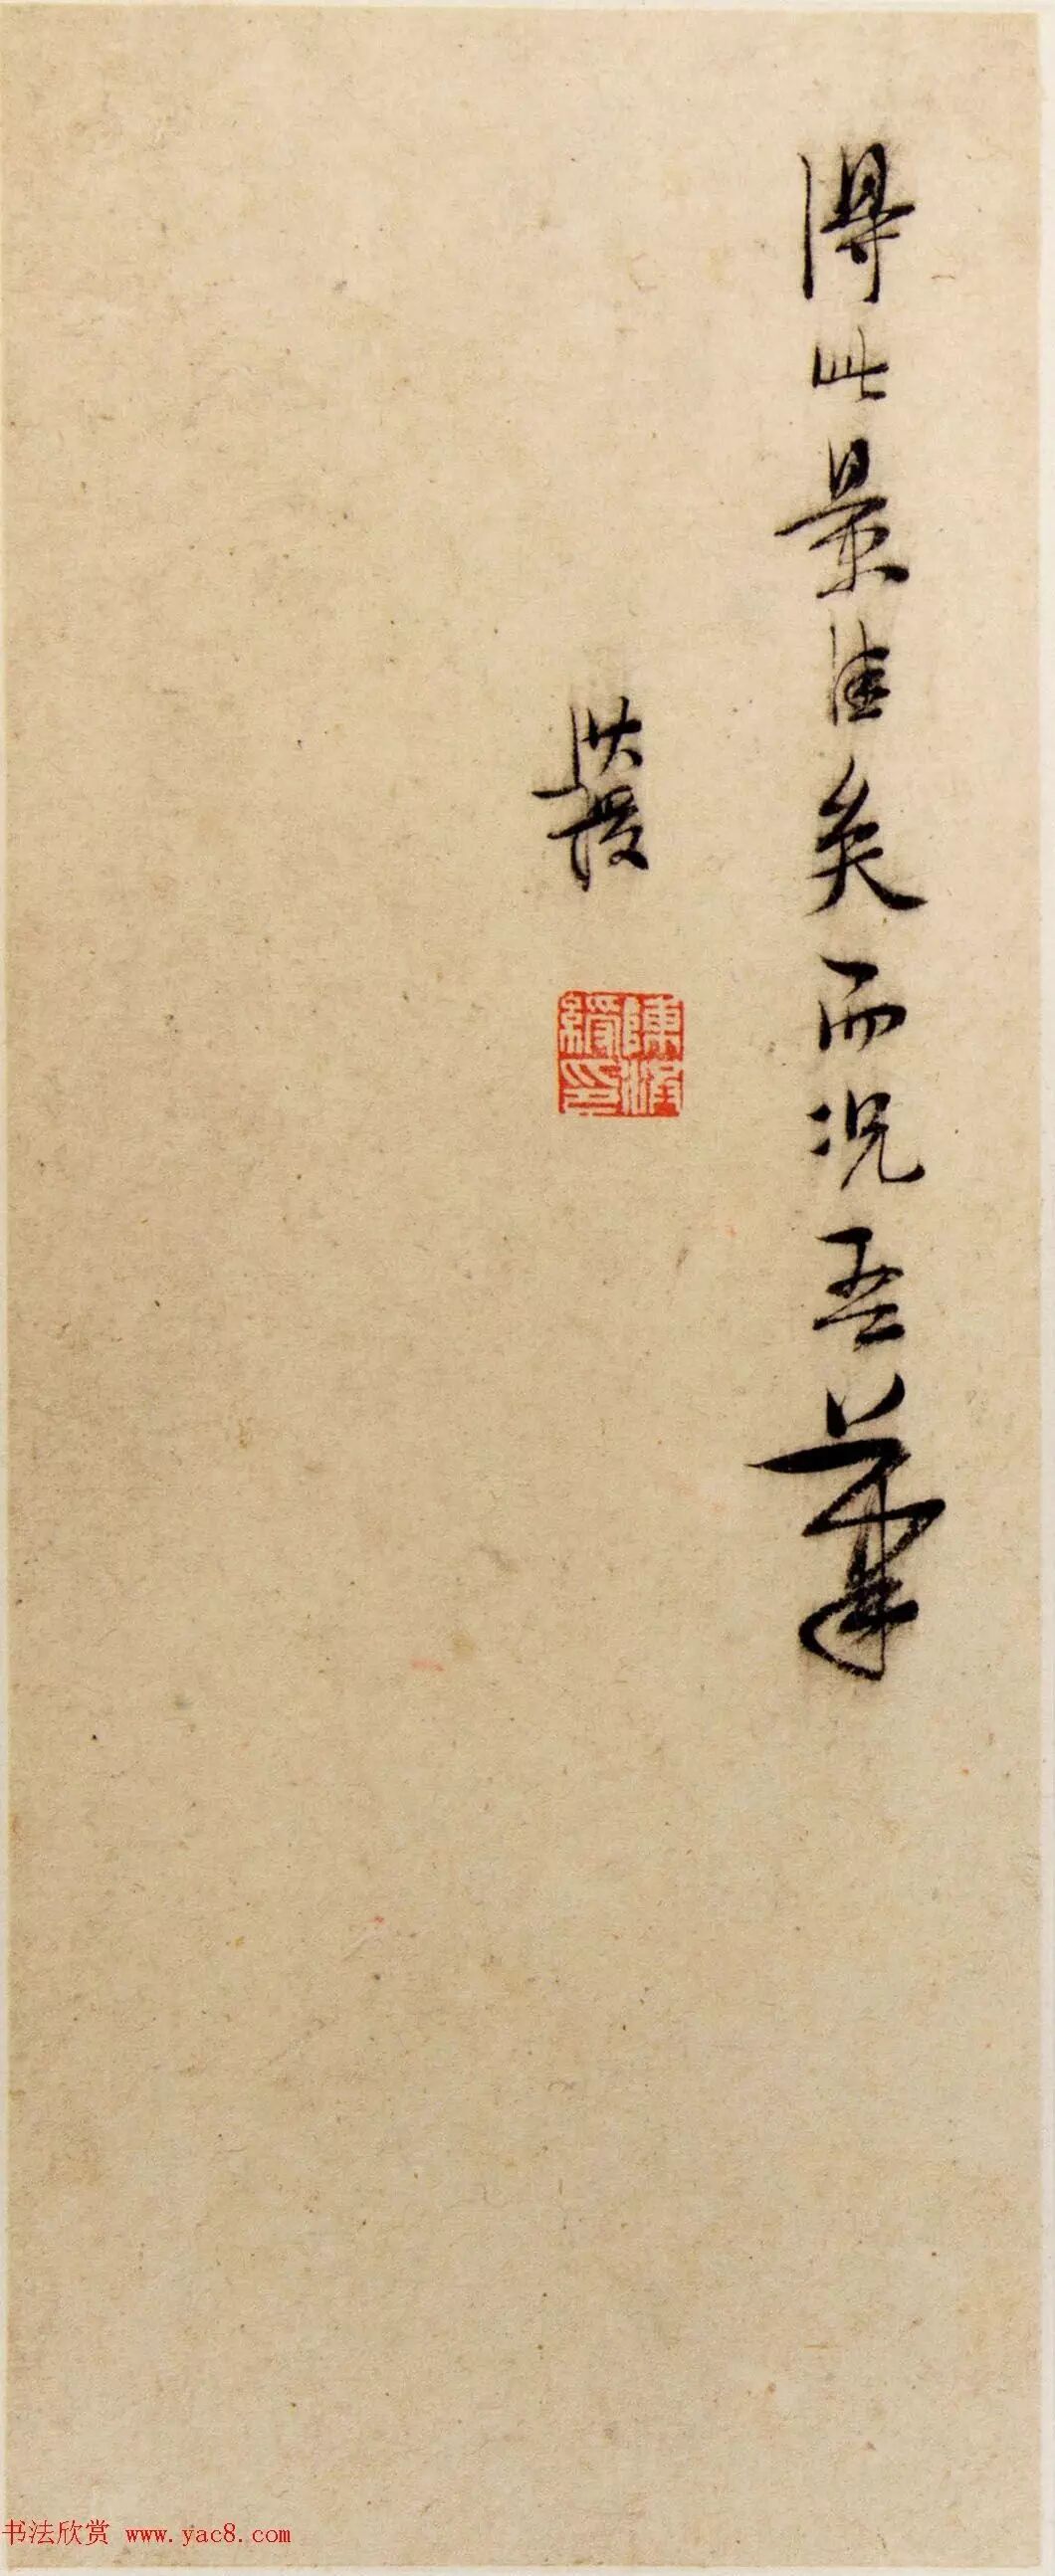 得此景佳矣而况吾輩
洪綬
陳洪
綬印
书法欣赏 www.yac8.com